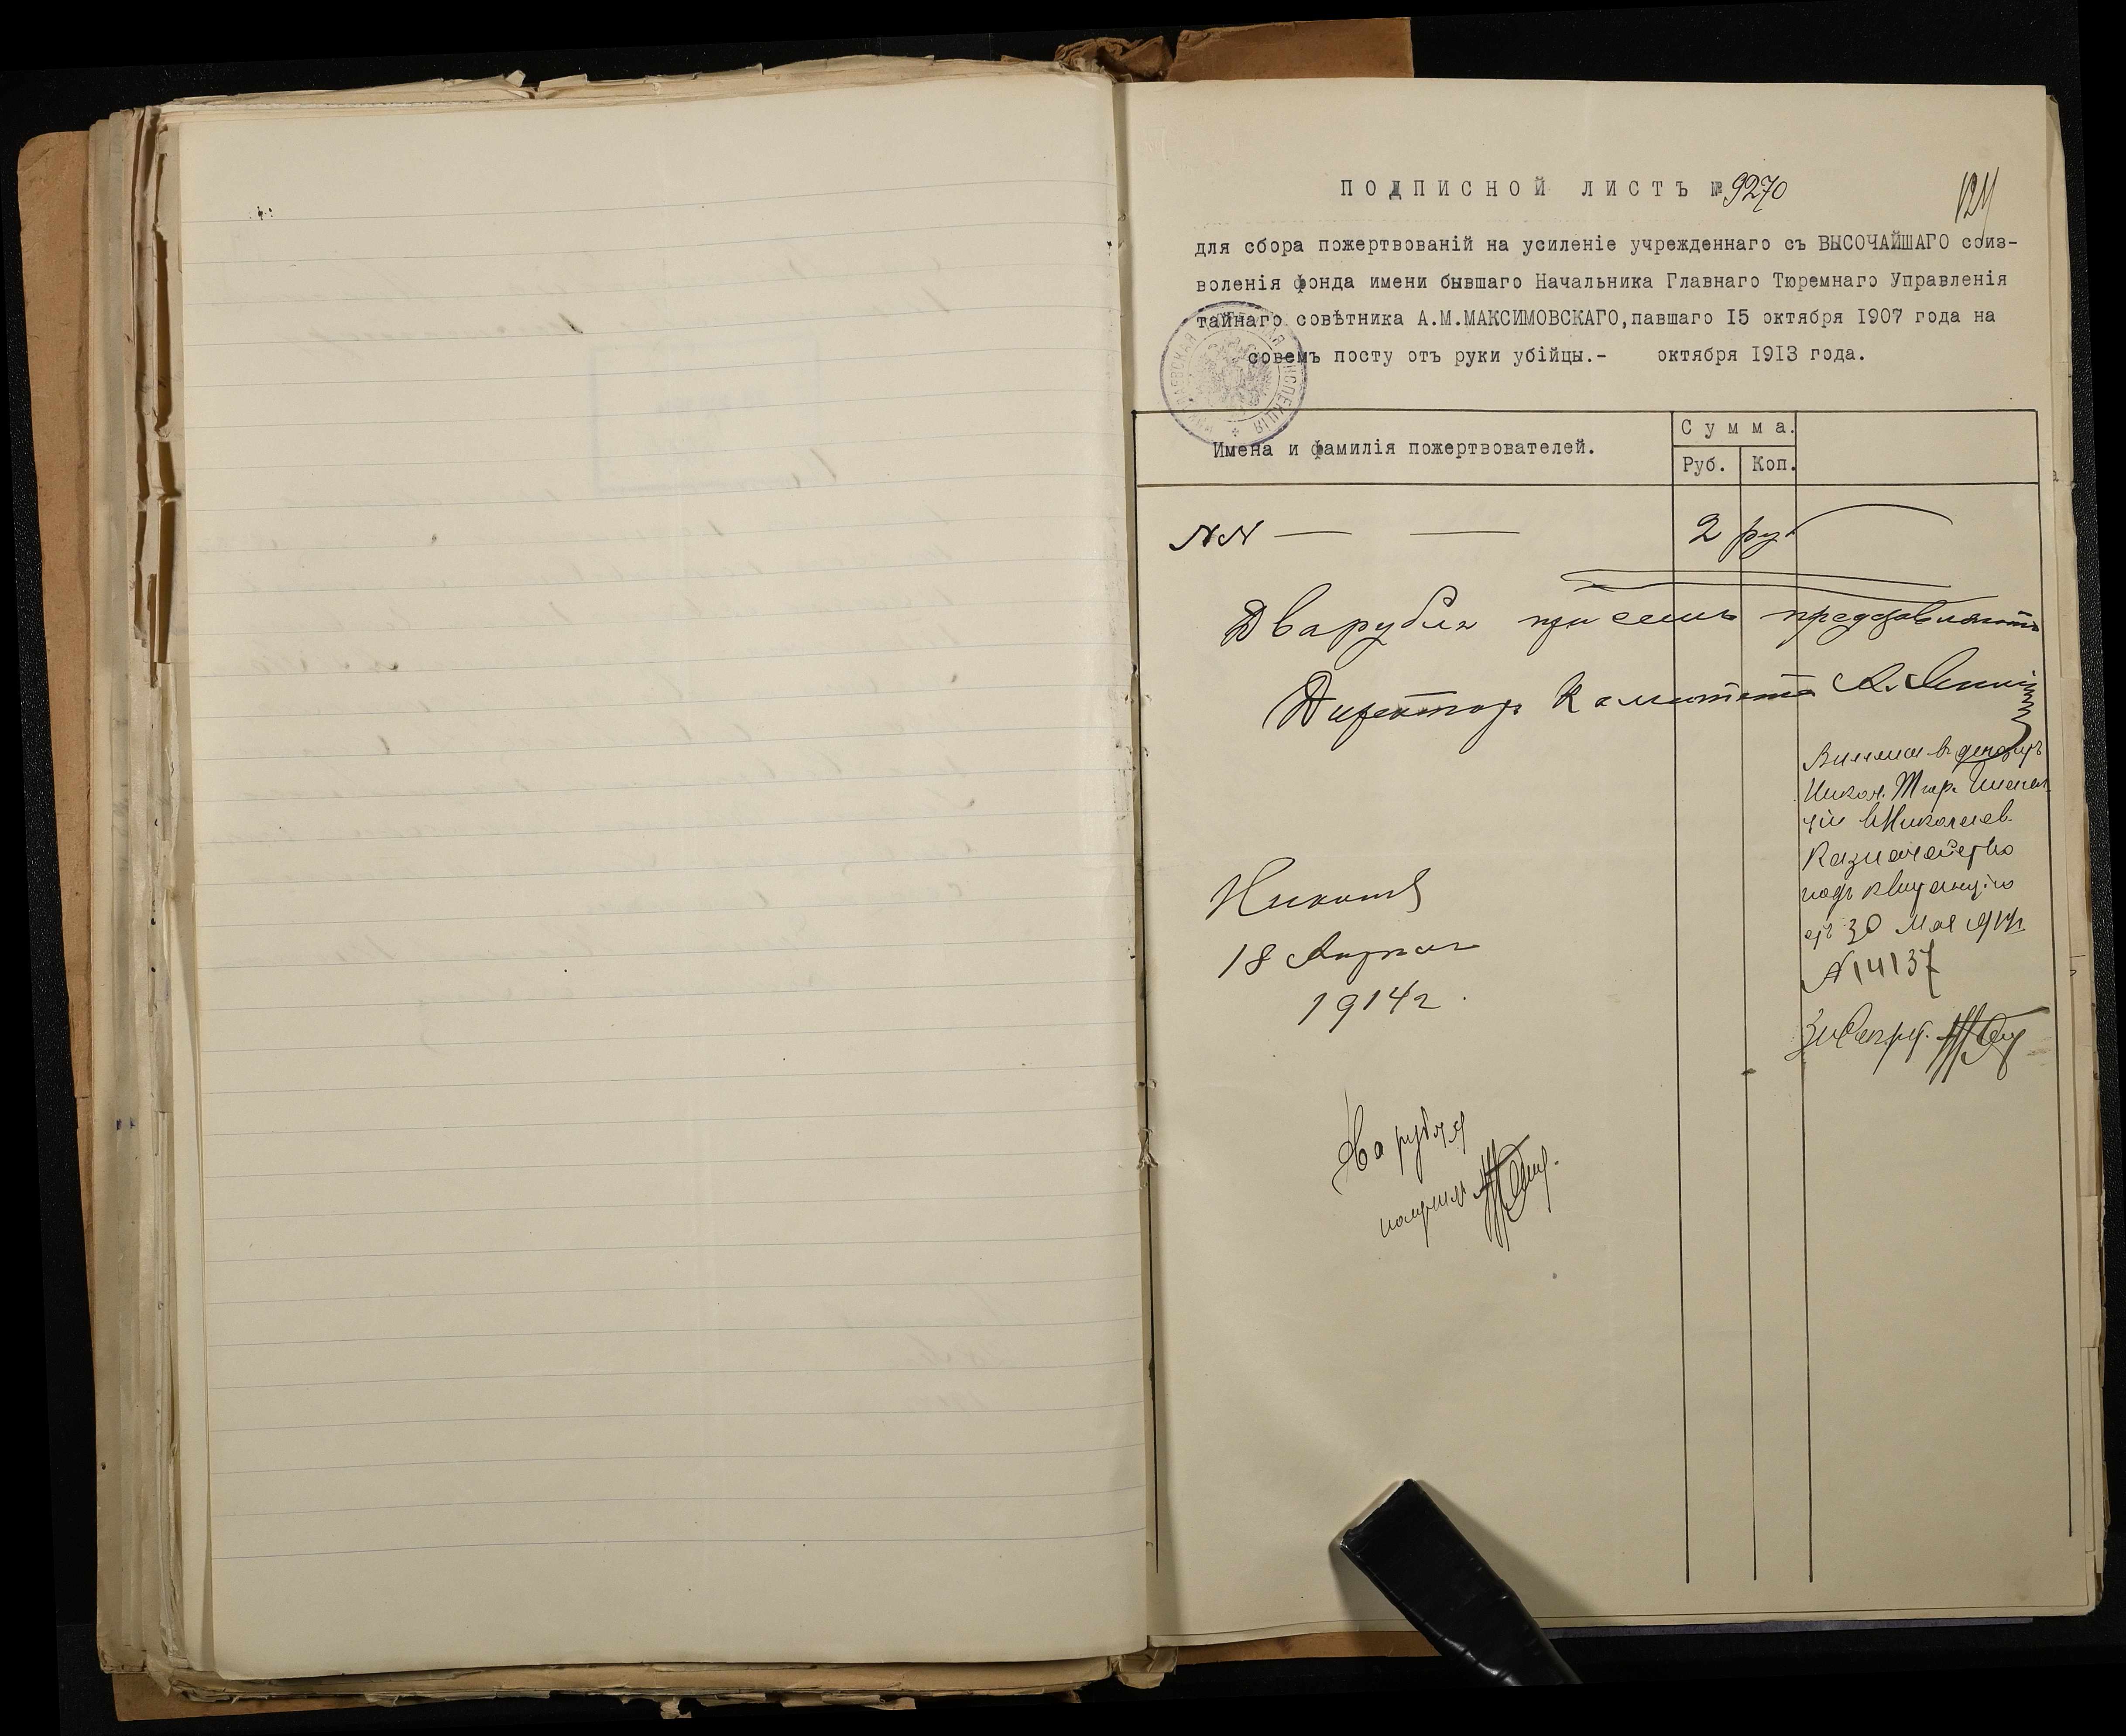 ПОДПИСНОЙ ЛИСТЪ № 9270
124
для сбора пожертвованій на усиленіе учрежденнаго съ ВЫСОЧАЙШАГО соиз-
воленія фонда имени бывшаго Начальника Главнаго Тюремнаго Управленія
тайнаго совѣтника А.М.МАКСИМОВСКАГО,павшаго 15 октября 1907 года на
совемъ посту отъ руки убійцы.- октября 1913 года.
Имена и фамилія пожертвователей.
Сумма.
Руб. Коп.
NN — — 2 руб
Два рубля при семъ представляетъ
Директоръ Комитета А.
въ депозитъ
Никол. Тюр. Инспек
ціи в Николаев.
Казначейство
подъ квитанцію
отъ 30 Мая 1914г.
№ 14137
Николаев
18 Апреля
1914 г.
Два рубля
получилъ